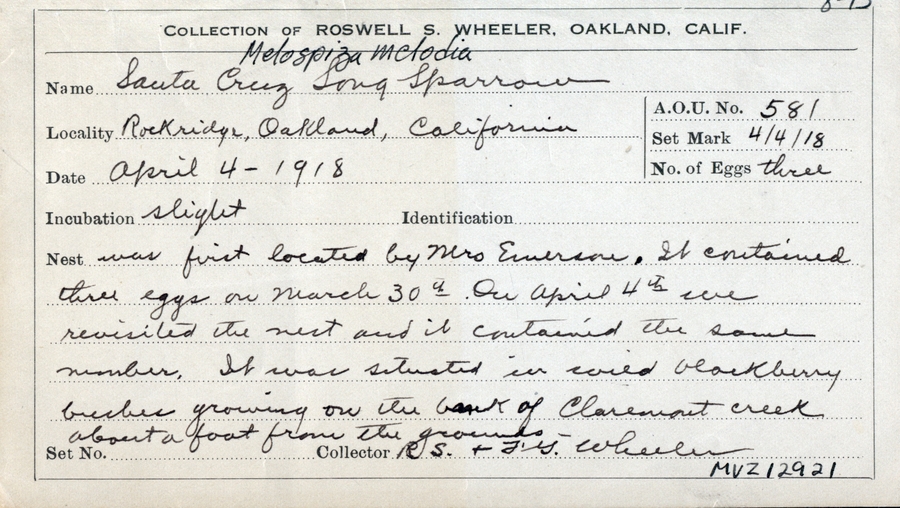 COLLECTION OF ROSWELL S. WHEELER, OAKLAND, CALIF.
Melospiza melodia
Name Santa Cruz Song Sparrow
A.O.U. No. 581
Locality Rockridge, Oakland, California
Set Mark 4/4/18
Date April 4 - 1918
No. of Eggs three
Incubation slight Identification
Nest was first located by Mrs Emerson. It contained
three eggs on March 30th. On April 4th we
revisited the nest and it contained the same
number. It was situated in wild blackberry
bushes growing on the bank of Claremont creek
about a foot from the grounds
Set No. Collector R S. + F. G. Wheeler
MVZ 12921